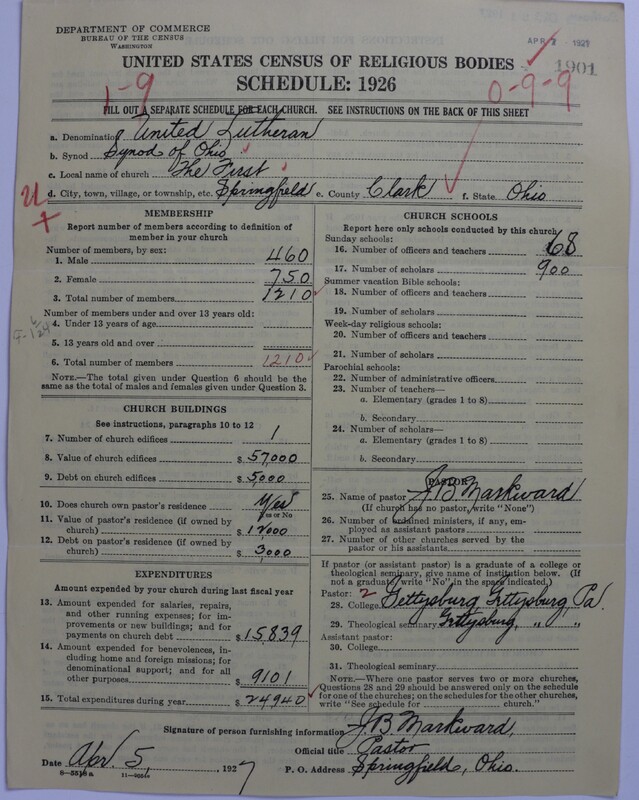 DEPARTMENT OF COMMERCE
BUREAU OF THE CENSUS
WASHINGTON
APR 1927
1901
UNITED STATES CENSUS OF RELIGIOUS BODIES
SCHEDULE: 1926
1-9
0-9-9
FILL OUT A SEPARATE SCHEDULE FOR EACH CHURCH. SEE INSTRUCTIONS ON THE BACK OF THIS SHEET
a. Denomination United Lutheran
b. Synod Synod of Ohio
c. Local name of church The First
d. City, town, village, or township, etc. Springfield e. County Clark f. State Ohio
MEMBERSHIP
Report number of members according to definition of
member in your church
Number of members, by sex:
1. Male 460
2. Female 750
3. Total number of members 1210
Number of members under and over 13 years old:
4. Under 13 years of age
5. 13 years old and over
6. Total number of members 1210
NOTE.—The total given under Question 6 should be the
same as the total of males and females given under Question 3.
CHURCH BUILDINGS
See instructions, paragraphs 10 to 12
7. Number of church edifices 1
8. Value of church edifices $ 57,000
9. Debt on church edifices $ 5,000
10. Does church own pastor's residence Yes
Yes or No
11. Value of pastor's residence (if owned by
church) $ 12000
12. Debt on pastor's residence (if owned by
church) $ 3,000
EXPENDITURES
Amount expended by your church during last fiscal year
13. Amount expended for salaries, repairs,
and other running expenses; for im-
provements or new buildings; and for
payments on church debt $ 15,839
14. Amount expended for benevolences, in-
cluding home and foreign missions; for
denominational support; and for all
other purposes $ 9101
15. Total expenditures during year $ 24940
CHURCH SCHOOLS
Report here only schools conducted by this church
Sunday schools:
16. Number of officers and teachers 68
17. Number of scholars 900
Summer vacation Bible schools:
18. Number of officers and teachers
19. Number of scholars
Week-day religious schools:
20. Number of officers and teachers
21. Number of scholars
Parochial schools:
22. Number of administrative officers
23. Number of teachers—
a. Elementary (grades 1 to 8)
b. Secondary
24. Number of scholars—
a. Elementary (grades 1 to 8)
b. Secondary
PASTOR
25. Name of pastor J. B. Markward
(If church has no pastor, write "None")
26. Number of ordained ministers, if any, em-
ployed as assistant pastors
27. Number of other churches served by the
pastor or his assistants
If pastor (or assistant pastor) is a graduate of a college or
theological seminary, give name of institution below. (If
not a graduate, write "No" in the space indicated.)
Pastor: 2
28. College Gettysburg, Gettysburg, Pa.
29. Theological seminary Gettysburg, " "
Assistant pastor:
30. College
31. Theological seminary
NOTE.—Where one pastor serves two or more churches,
Questions 28 and 29 should be answered only on the schedule
for one of the churches; on the schedules for the other churches,
write "See schedule for church."
Signature of person furnishing information J. B. Markward,
Official title Pastor
Date Apr. 5, 1927 P. O. Address Springfield, Ohio.